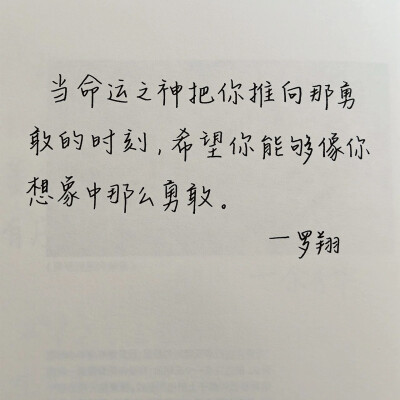 当命运之神把你推向那勇
敢的时刻,希望你能够像你
想象中那么勇敢。
一罗翔